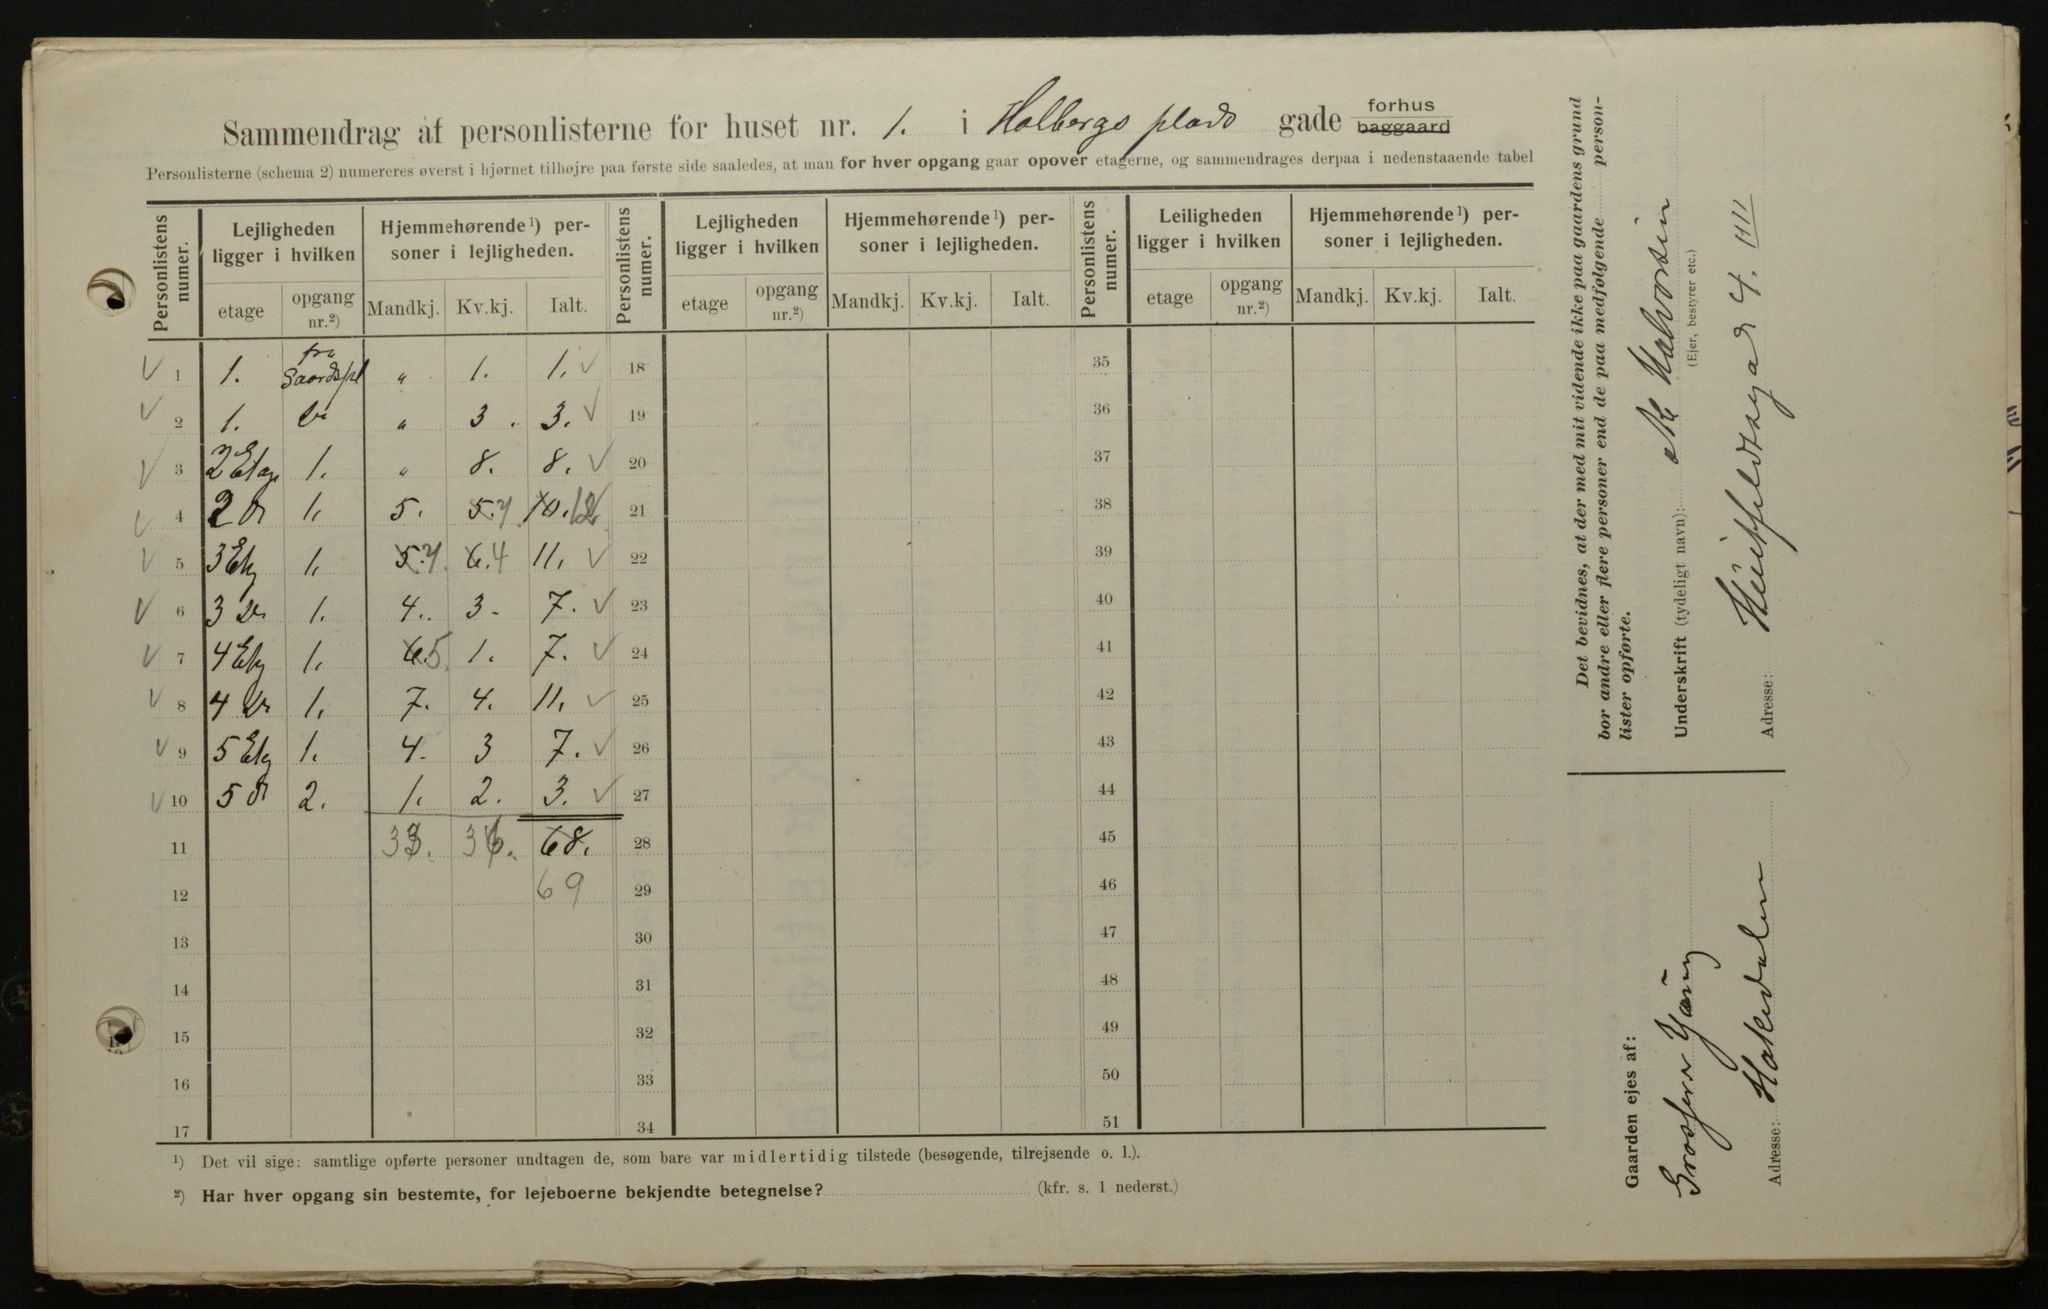 Sammendrag af personlisterne for huset nr. 1. i Holbergs plads gade forhus baggaard
Personlisterne (schema 2) numereres øverst i hjørnet tilhøjre paa første side saaledes, at man for hver opgang gaar opover etagerne, og sammendrages derpaa i nedenstaaende tabel
Personlistens numer. Lejligheden ligger i hvilken Hjemmehørende ¹) personer i lejligheden. Personlistens numer. Lejligheden ligger i hvilken Hjemmehørende ¹) personer i lejligheden. Personlistens numer. Leiligheden ligger i hvilken Hjemmehørende ¹) personer i lejligheden.
etage opgang nr.²) Mandkj. Kv.kj. Ialt. etage opgang nr.²) Mandkj. Kv.kj. Ialt. etage opgang nr.²) Mandkj. Kv.kj. Ialt.
1 1. fra Gaardspl „ 1. 1. 18 35
2 1. „ 3. 3. 19 36
3 2 Etag. 1. „ 8. 8. 20 37
4 2 1. 5. 5. 7 10. 12 21 38
5 3 Etg 1. 5. 7. 6. 4 11. 22 39
6 3 1. 4. 3- 7. 23 40
7 4 Etg 1. 6. 5. 1. 7. 24 41
8 4 1. 7. 4. 11. 25 42
9 5 Etg 1. 4. 3 7. 26 43
10 5 2. 1. 2. 3. 27 44
11 68. 28 45
12 69 29 46
13 30 47
14 31 48
15 32 49
16 33 50
17 34 51
¹) Det vil sige: samtlige opførte personer undtagen de, som bare var midlertidig tilstede (besøgende, tilrejsende o. l.).
²) Har hver opgang sin bestemte, for lejeboerne bekjendte betegnelse? (kfr. s. 1 nederst.)
Det bevidnes, at der med mit vidende ikke paa gaardens grund
bor andre eller flere personer end de paa medfølgende person-
lister opførte.
Underskrift (tydeligt navn): M Halvorsen
(Ejer, bestyrer etc.)
Adresse: Huitfeldtsgade 4. IIII
Gaarden ejes af:
Grosserer Young
Adresse: Hakedalen